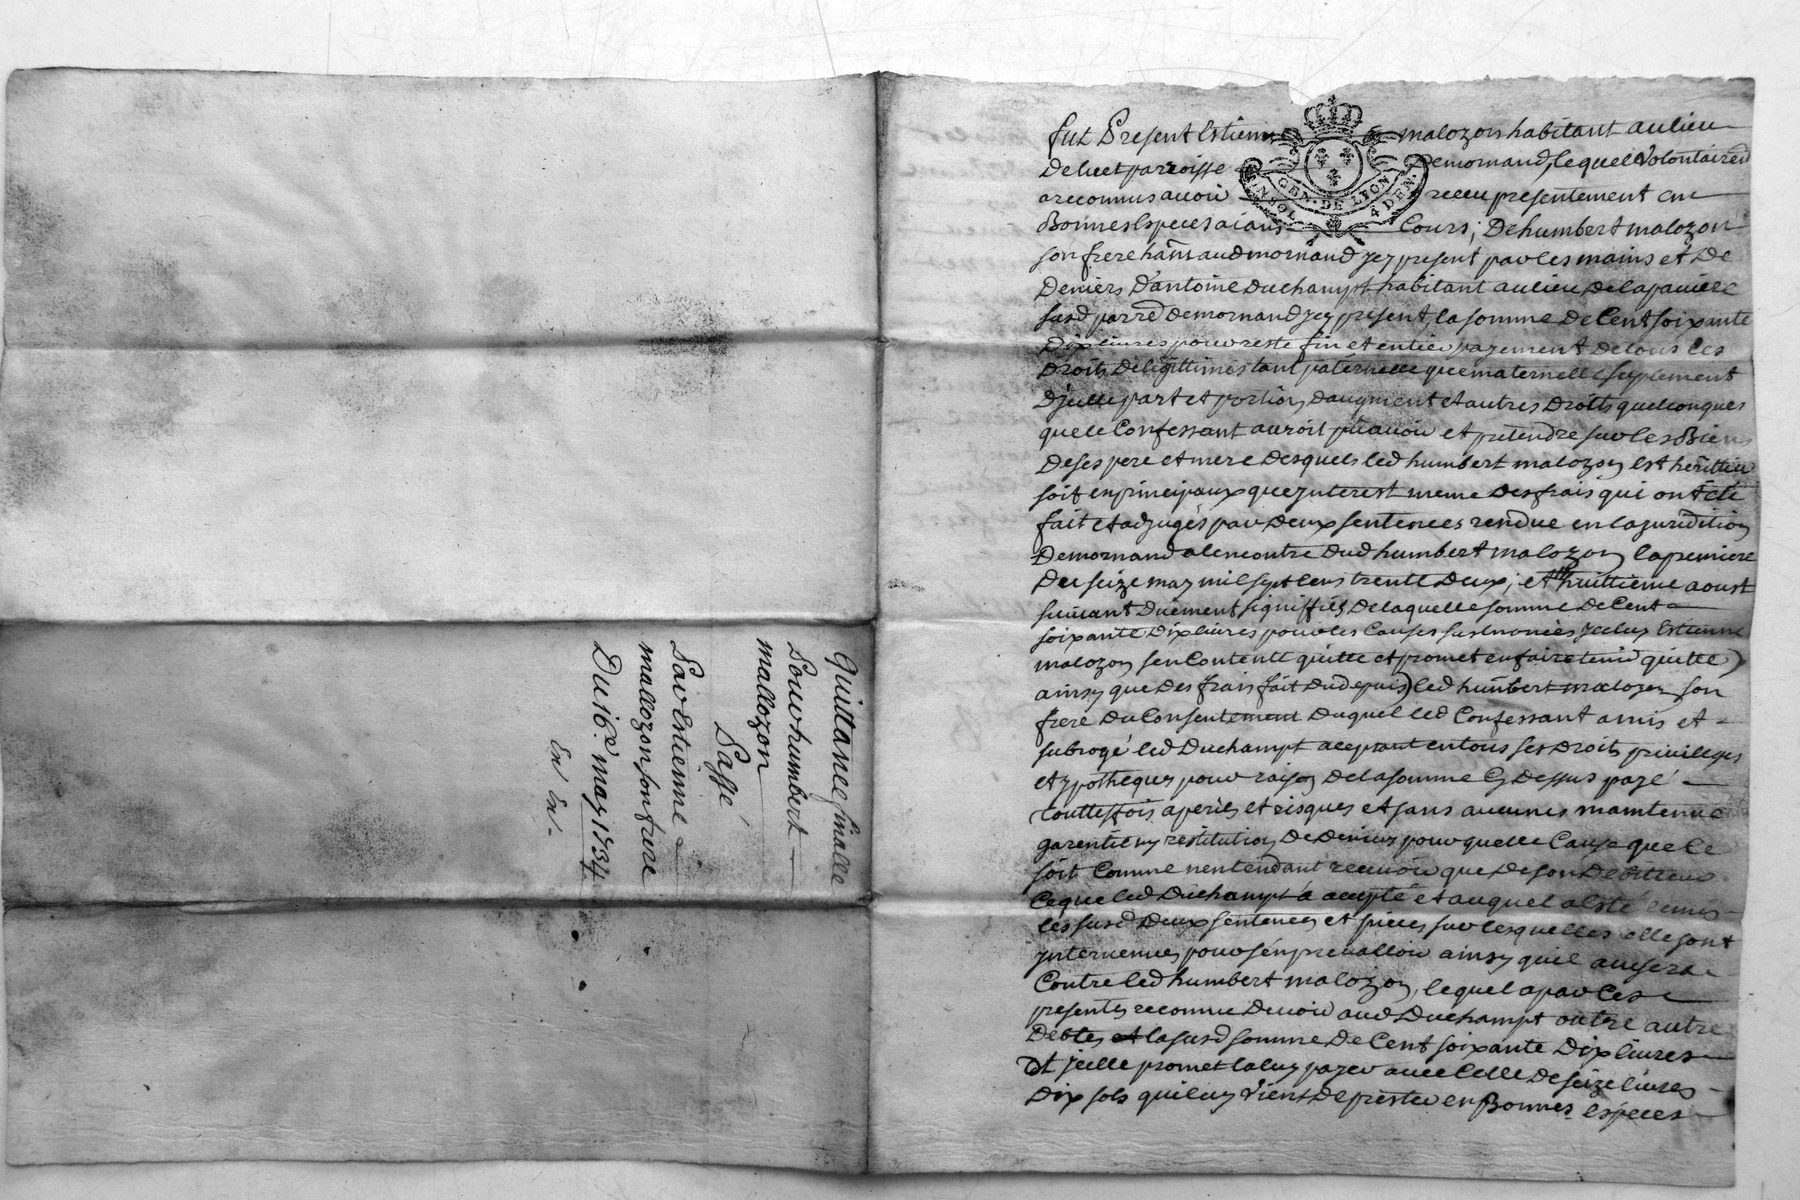 Quittance finalle
Pour humbert
mallozon
Passé
Par Estienne
mallozon son frere
Du 16.e may 1734.
En Ex.
fut Present Estienne malozon habitant au lieu
De luet parroisse Demornand, lequel Volontairemt
a reconnus avoir receu presentement en
Bonnes Especes aians Cours, De humbert malozon
son frere hant aud mornand jcy present par les mains et De
Deniers D'antoine Duchampt habitant au lieu De
susd parre Demornand jcy present, la somme De Cent soixante
Dix livres pour reste fin et entier payement De tous les
Droits De legittimes tant paternelle que maternelle suplement
D'jcelle part et portion D'augment et autres Droits quelconques
que le Confessant auroit pû avoir et pretendre sur les Biens
De ses pere et mere Desquels led humbert malozon Est heritier
soit en principaux que jnterest meme Des frais qui ont été
fait et adjugés par Deux sentences rendue en la juridition
Demornand alencontre Dud humbert malozon la premiere
Du seize may mil sept Cens trente Deux; et huittieme aoust
suivant Duement signiffiés De laquelle somme De Cent
soixante Dix livres pour les Causes susenoncées jceluy Estienne
malozon sen Contente quitte et promet en faire tenir quitte
ainsy que Des frais fait Dudepuis led humbert malozon son
frere Du Consentement Duquel led Confessant a mis et
subrogé led Duchampt aceptant en tous ses Droits privileges
et ypotheques pour raison De la somme Cy Dessus payé
touttesfois a perils et risques et sans aucunes maintenue
garentie ny restitution De Deniers pour quelle Cause que Ce
soit Comme nentendant recevoir que De son Debitteur
Ceque led Duchampt á accepté et auquel a Esté remis
les susd Deux sentences et pieces sur lesquelles elle sont
jntervenues pour s'en prevalloir ainsy quil avisera
Contre led humbert malozon, lequel a par Ces
presentes reconnu Devoir aud Duchampt outre autre
Debtes la susd somme De Cent soixante Dix livres
Et jcelle promet luy payer avec Celle De seize livres
Dix sols quil luy Vient De prester en Bonnes especes